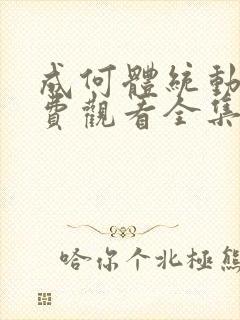 成何體統動
費觀看全集
哈你个北極熊